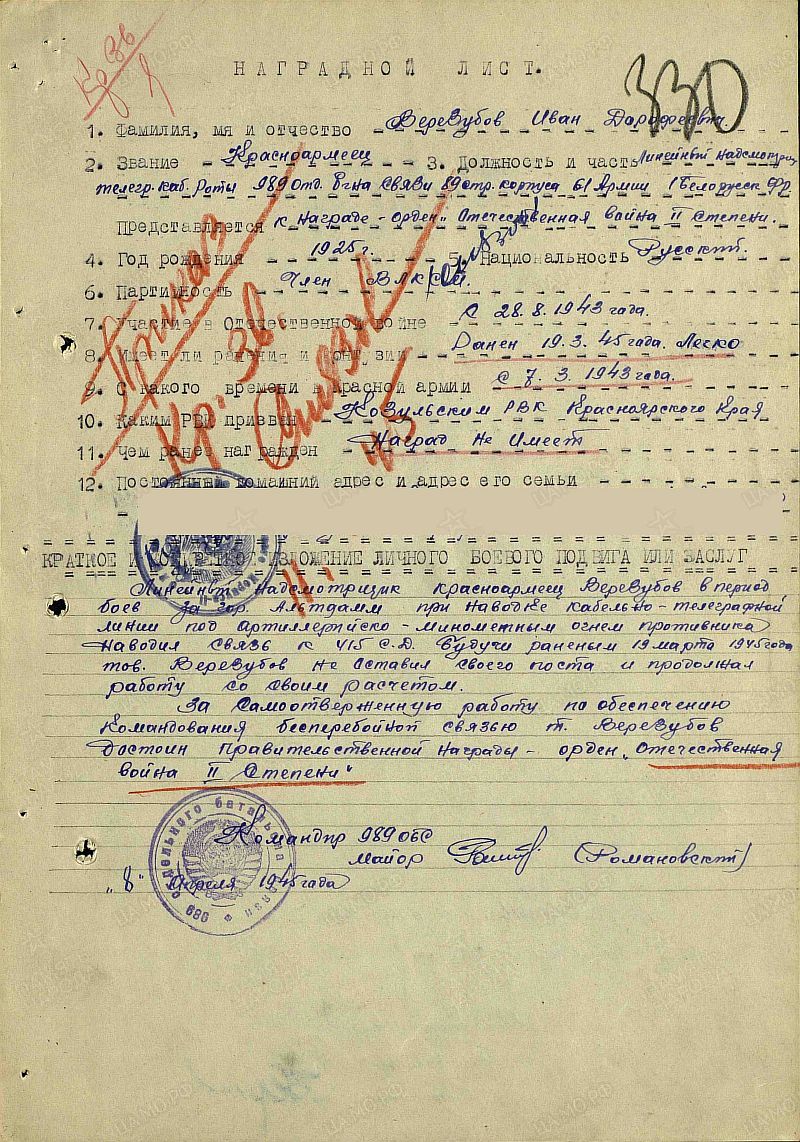 Кр Зв
330
НАГРАДНОЙ ЛИСТ.
1. Фамилия, мя и отчество - Верезубов Иван Дорофеевич
2. Звание - Красноармеец - - - 3. Должность и часть Линейный надсмотрщик
телегр. каб. роты 989 отд. б-на связи 89 стр. корпуса 61 Армии 1 Белорусск Фр.
Представляется к награде - орден "Отечественная война II степени.
4. Год рождения - - 1925 г. - - 5. Национальность Русский.
6. Партийность - Член ВЛКСМ.
7. Участие в Отечественной войне с 28.8.1943 года.
8. Имеет ли ранения и контузии - Ранен 19.3.45 года. Легко
9. С какого времени в Красной армии с 7.3.1943 года.
10. Каким РВК призван - Козульским РВК Красноярского Края
11. Чем ранее награжден - Наград не имеет
12. Постоянный домашний адрес и адрес его семьи - - - - - - -
Приказ
Кр. Зв.
КРАТКОЕ И КОНКРЕТНОЕ ИЗЛОЖЕНИЕ ЛИЧНОГО БОЕВОГО ПОДВИГА ИЛИ ЗАСЛУГ
Линейный надсмотрщик красноармеец Верезубов в период
боев за гор. Альтдамм при наводке кабельно-телеграфной
линии под артиллерийско-минометным огнем противника
наводил связь к 415 С.Д. Будучи раненым 19 марта 1945 года
тов. Верезубов не оставил своего поста и продолжал
работу со своим расчетом.
За самоотверженную работу по обеспечению
командования бесперебойной связью т. Верезубов
достоин правительственной награды - орден "Отечественная
война II степени"
Командир 989 ОБС
майор (Романовский)
"8" Апреля 1945 года
отдельного батальона
989